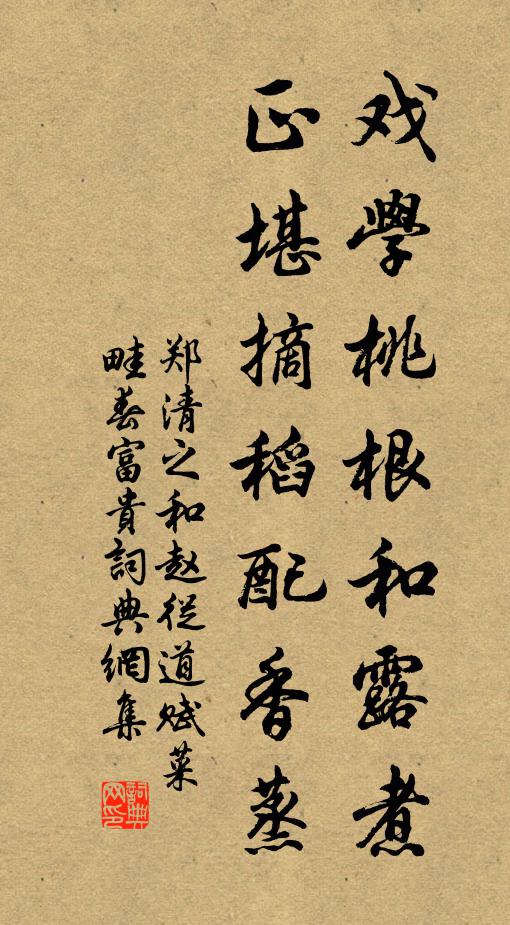 戏學桃根和露煮
正堪摘稻配香蒸
郑清之和赵從道赋菜
畦春富貴詞典網集
詞典网印